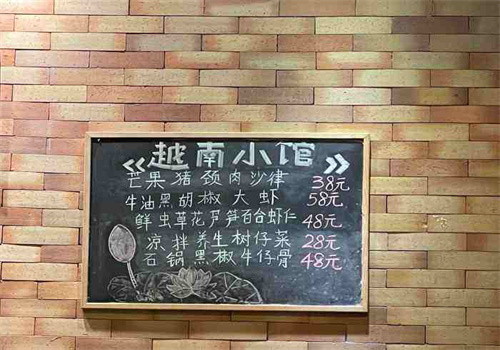 «越南小馆»
芒果猪颈肉沙律 38元
牛油黑胡椒大虾 58元
鲜虫草花芦笋百合虾仁 48元
凉拌养生树仔菜 28元
石锅黑椒牛仔骨 48元